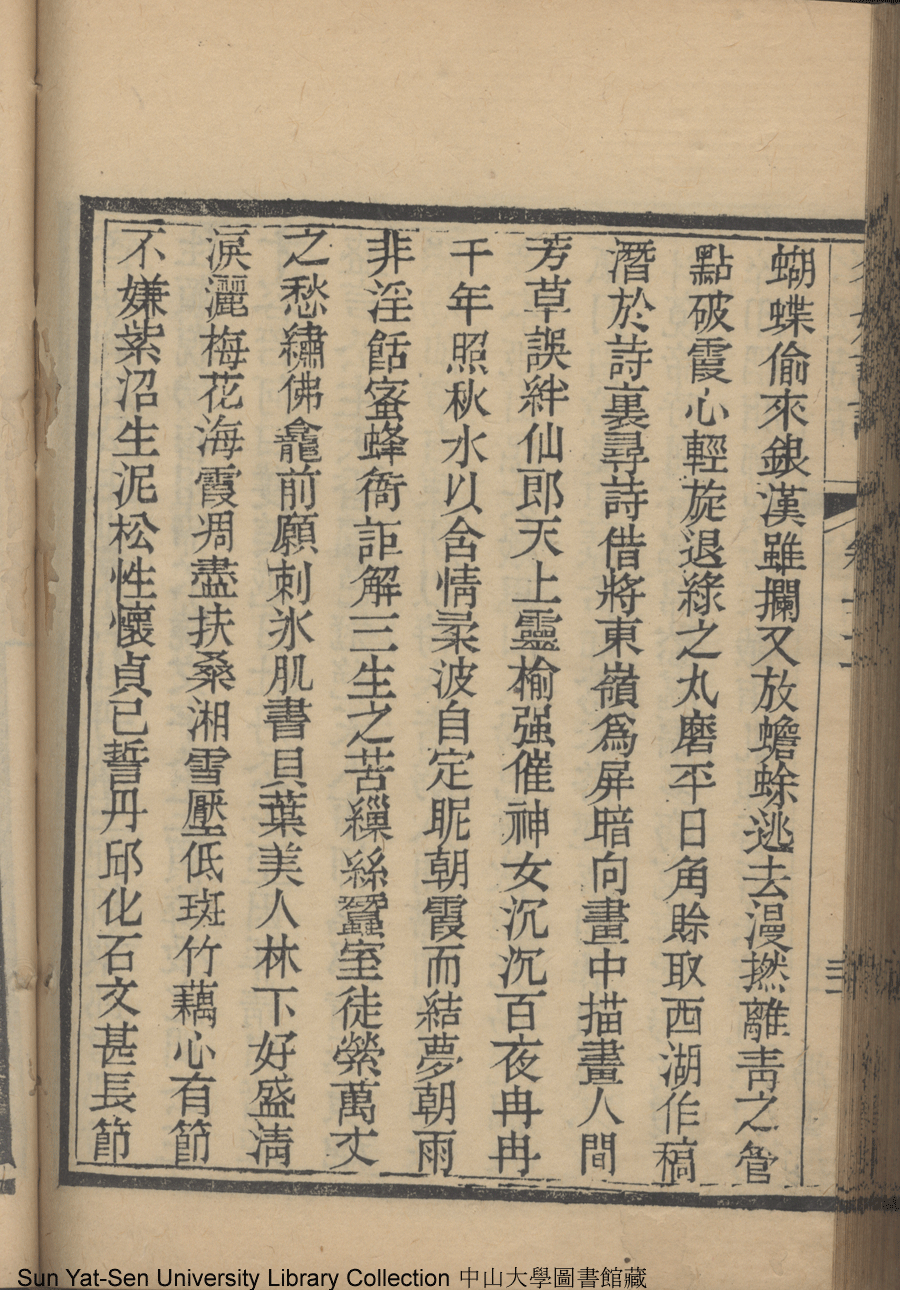 蝴蝶偷來銀漢雖攔又放蟾蜍逃去漫撚離靑之管
點破霞心輕旋退綠之丸磨平日角賒取西湖作稿
潛於詩裏尋詩借將東嶺爲屏暗向畫中描畫人間
芳草誤絆仙郎天上靈榆强催神女沉沉百夜冉冉
千年照秋水以含情柔波自定眤朝霞而結夢朝雨
非淫餂蜜蜂衙詎解三生之苦繅絲蠶室徒縈萬丈
之愁繡佛龕前願刺氷肌書貝葉美人林下好盛淸
淚灑梅花海霞凋盡扶桑湘雪壓低斑竹藕心有節
不嫌紫沼生泥松性懷貞已誓丹邱化石文甚長節
Sun Yat-Sen University Library Collection 中山大學圖書館藏